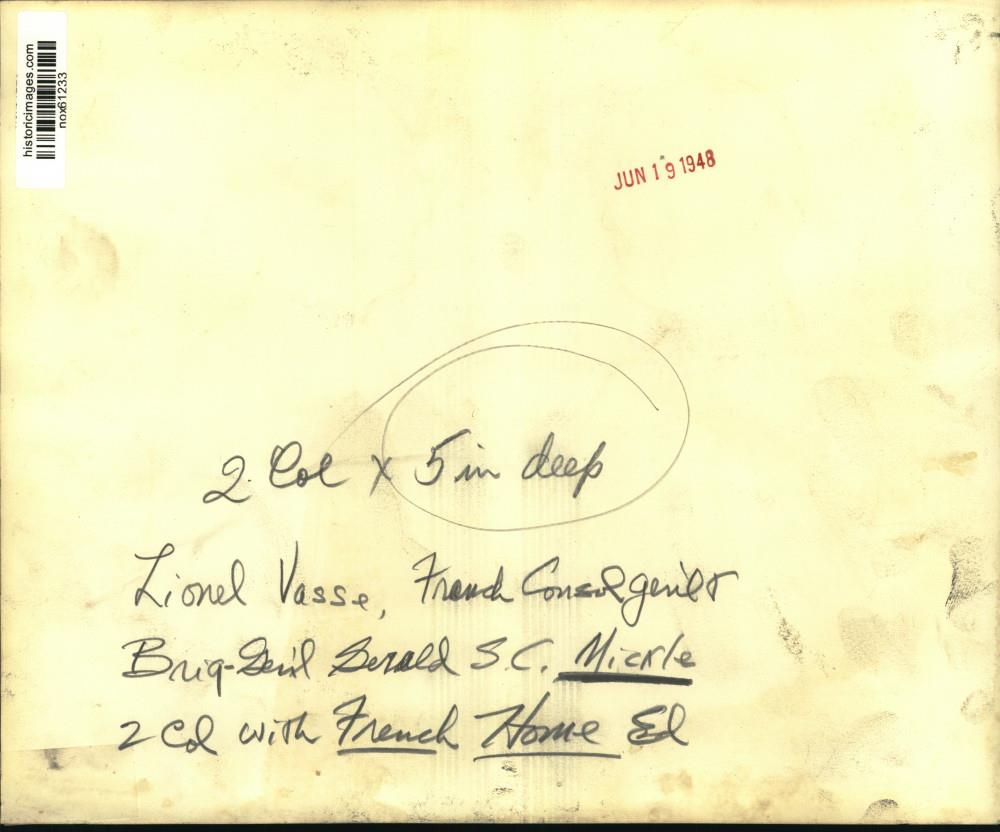 historicimages.com
nox61233
JUN 19 1948
2 Col x 5 in deep
Lionel Vasse, French Consul gen'l &
Brig-Gen'l Gerald S.C. Mickle
2 Col with French Home Ed